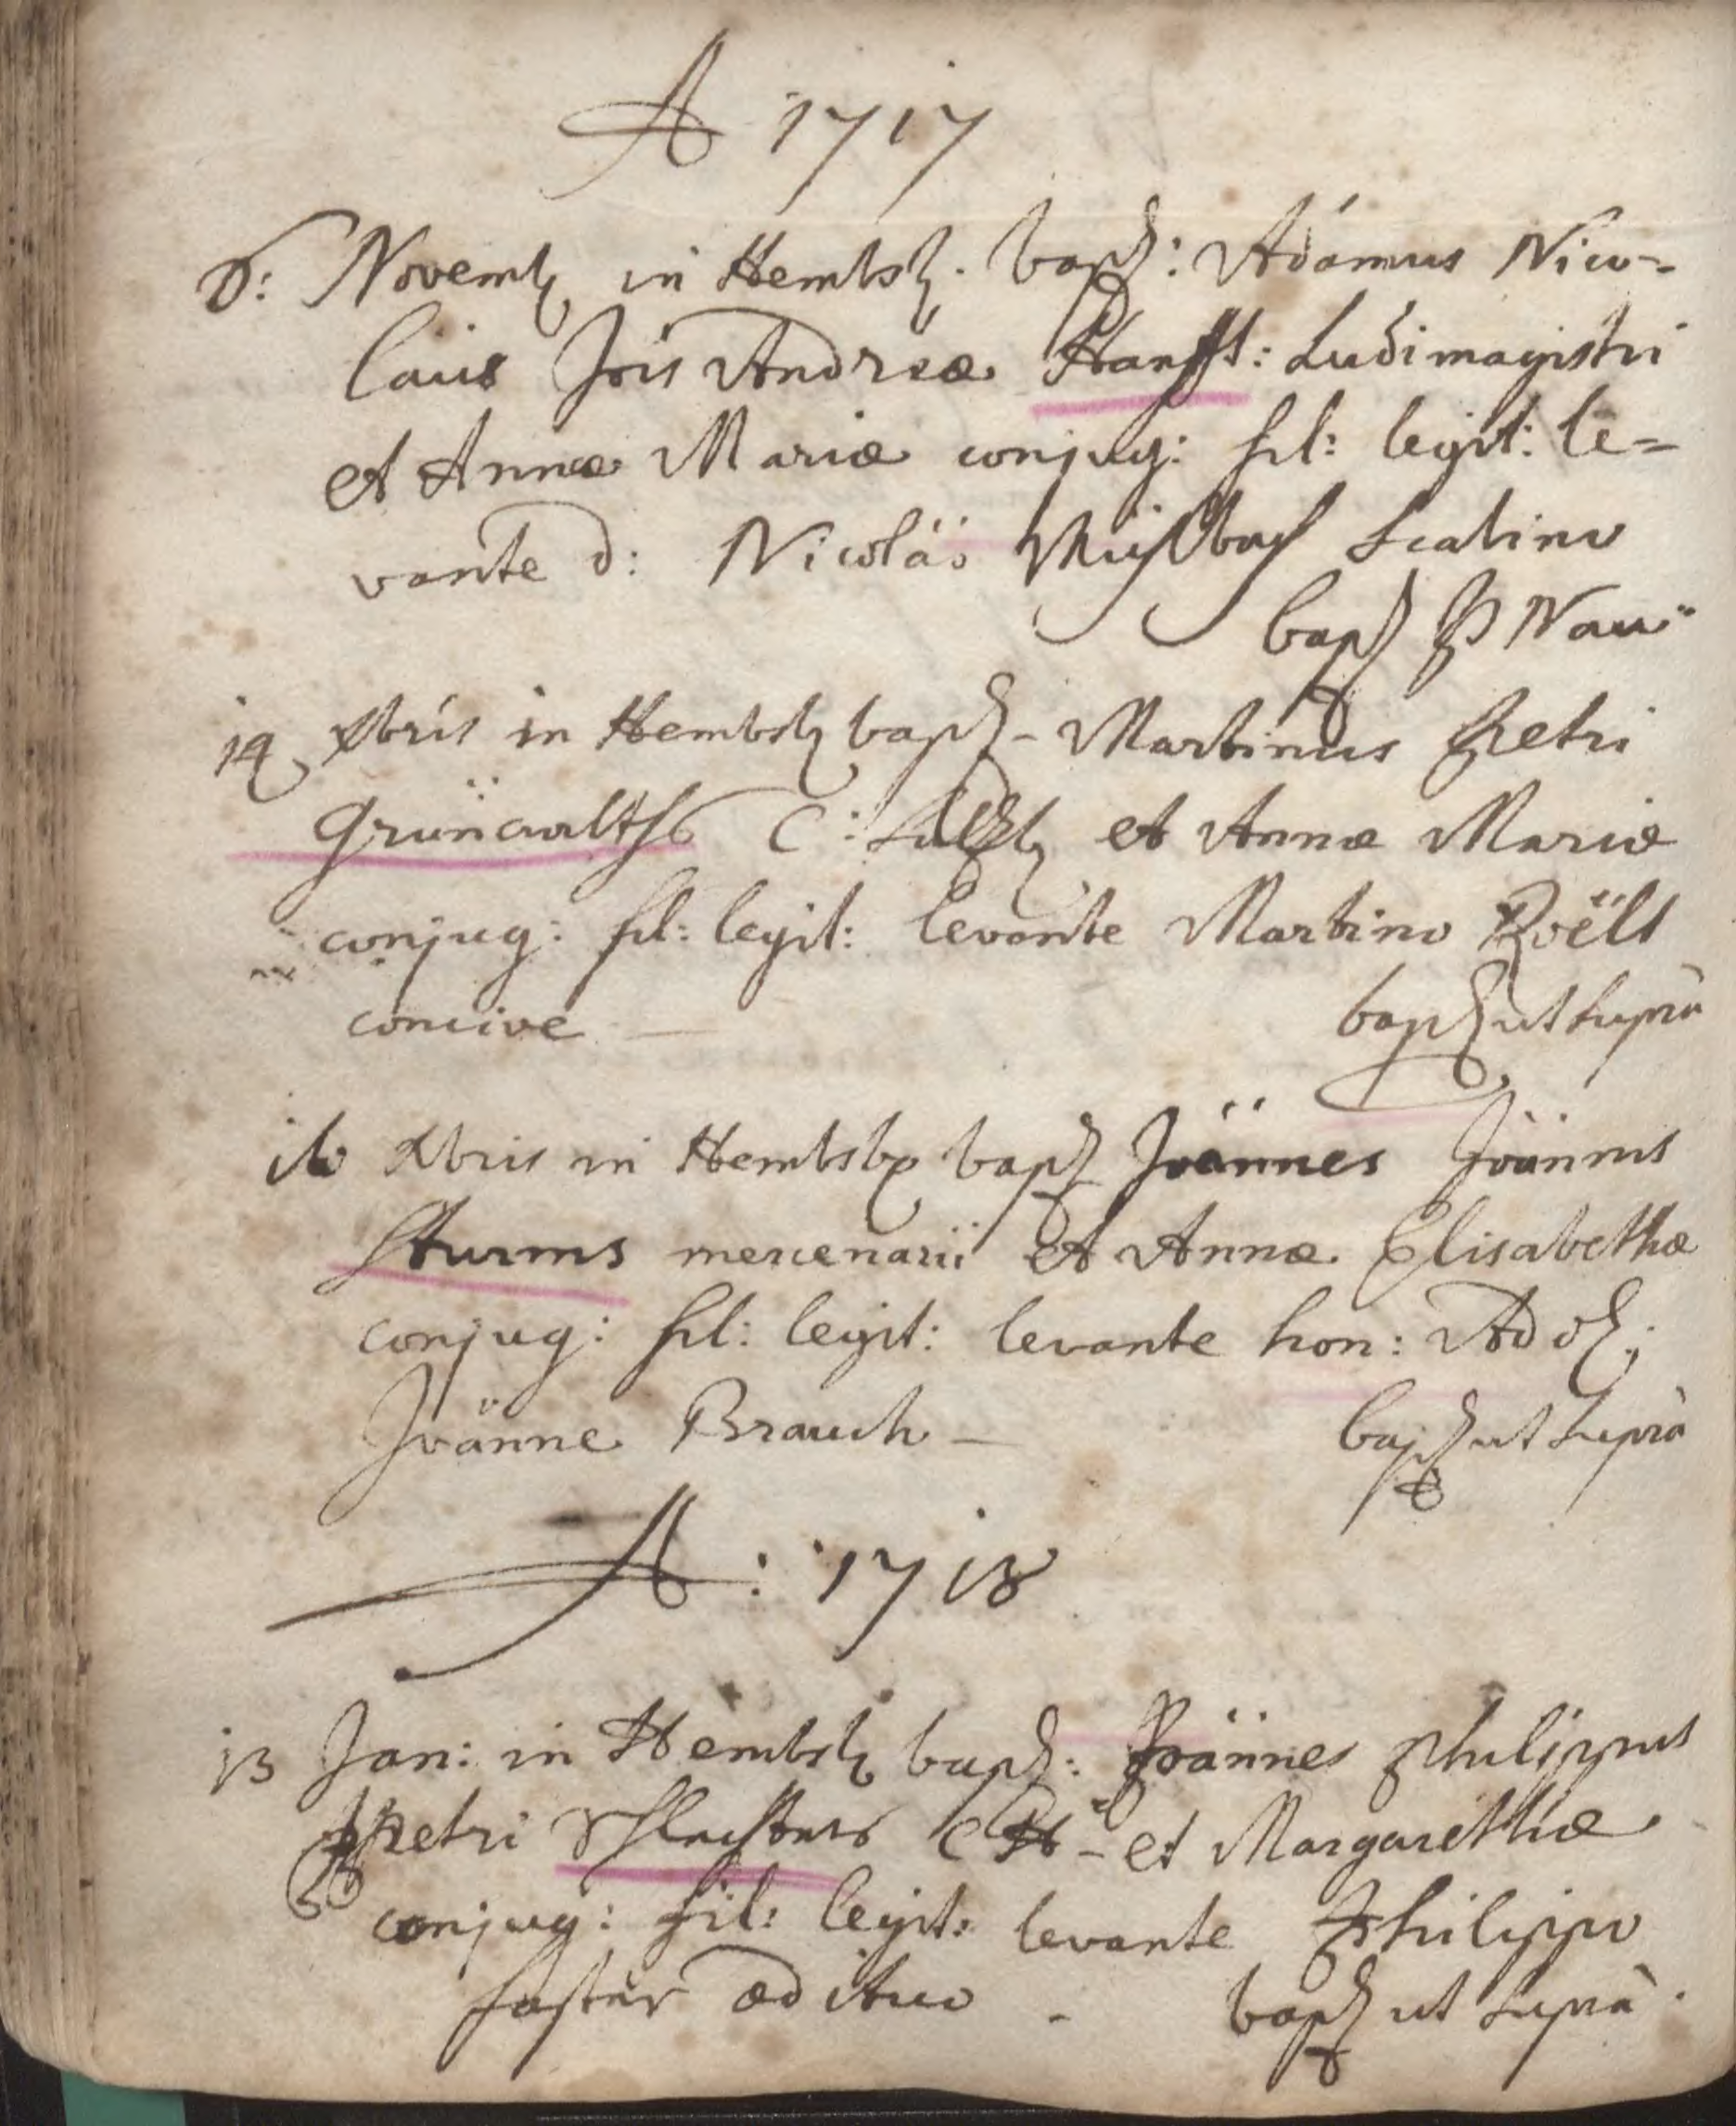 A 1717
8: Novemb in Hembsb. bapt: Adamus Nico-
laus Jois Andreæ Hanfft: Ludimagistri
et Annæ Mariæ conjug: fil: legit: le-
vante d: Nicoläo Scabino
bapt P Nau
14 Xbris in Hembsb bapt - Martinus Petri
Grünewalths C: et Annæ Mariæ
conjug: fil: legit: levante Martino
concive bapt ut suprà
16 Xbris in Hembsb bapt Joännes Joännis
Sturms mercenarii et Annæ Elisabethæ
conjug: fil: legit: levante hon: Adol:
Joänne Brauch - bapt ut suprà
A: 1718
13 Jan: in Hembsb bapt: Joännes Philippus
Petri C H - et Margarethæ
conjug: fil: legit: levante Philippo
æditùo - bapt ut suprà.